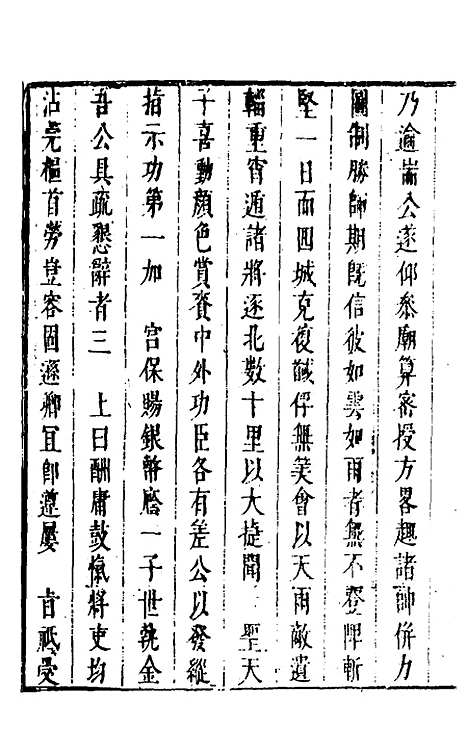 乃逾崙公遂仰叅廟算密授方畧趣諸帥併力
圖制勝師期旣信彼如雲如雨者無不登陴斬
堅一日而四城克復馘俘無筭會以天雨敵遺
輜重宵遁諸將逐北數十里以大捷聞 聖天
子喜動顔色賞賚中外功臣各有差公以發縱
指示功第一加 宮保賜銀幣廕一子世執金
吾公具疏懇辭者三 上曰酬庸鼓愾將吏均
沾元樞首勞豈容固遜卿宜卽遵屢 旨祇受